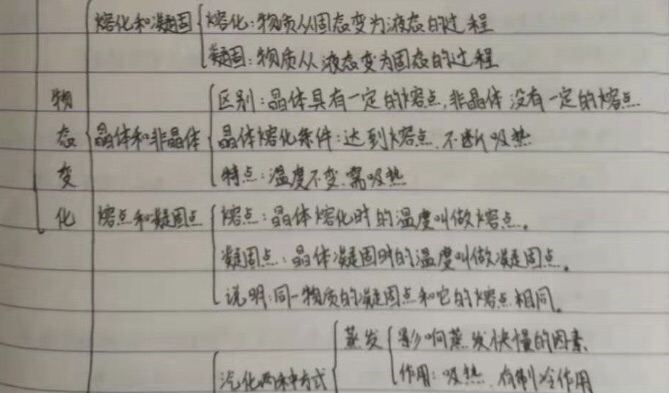 熔化和凝固 熔化:物质从固态变为液态的过程
凝固:物质从液态变为固态的过程
物态变化
区别:晶体具有一定的熔点,非晶体没有一定的熔点
晶体和非晶体 晶体熔化条件:达到熔点,不断吸热
特点:温度不变,需吸热
熔点和凝固点 熔点:晶体熔化时的温度叫做熔点。
凝固点:晶体凝固时的温度叫做凝固点。
说明:同一物质的凝固点和它的熔点相同。
蒸发 影响蒸发快慢的因素
汽化两种方式 作用:吸热,有制冷作用